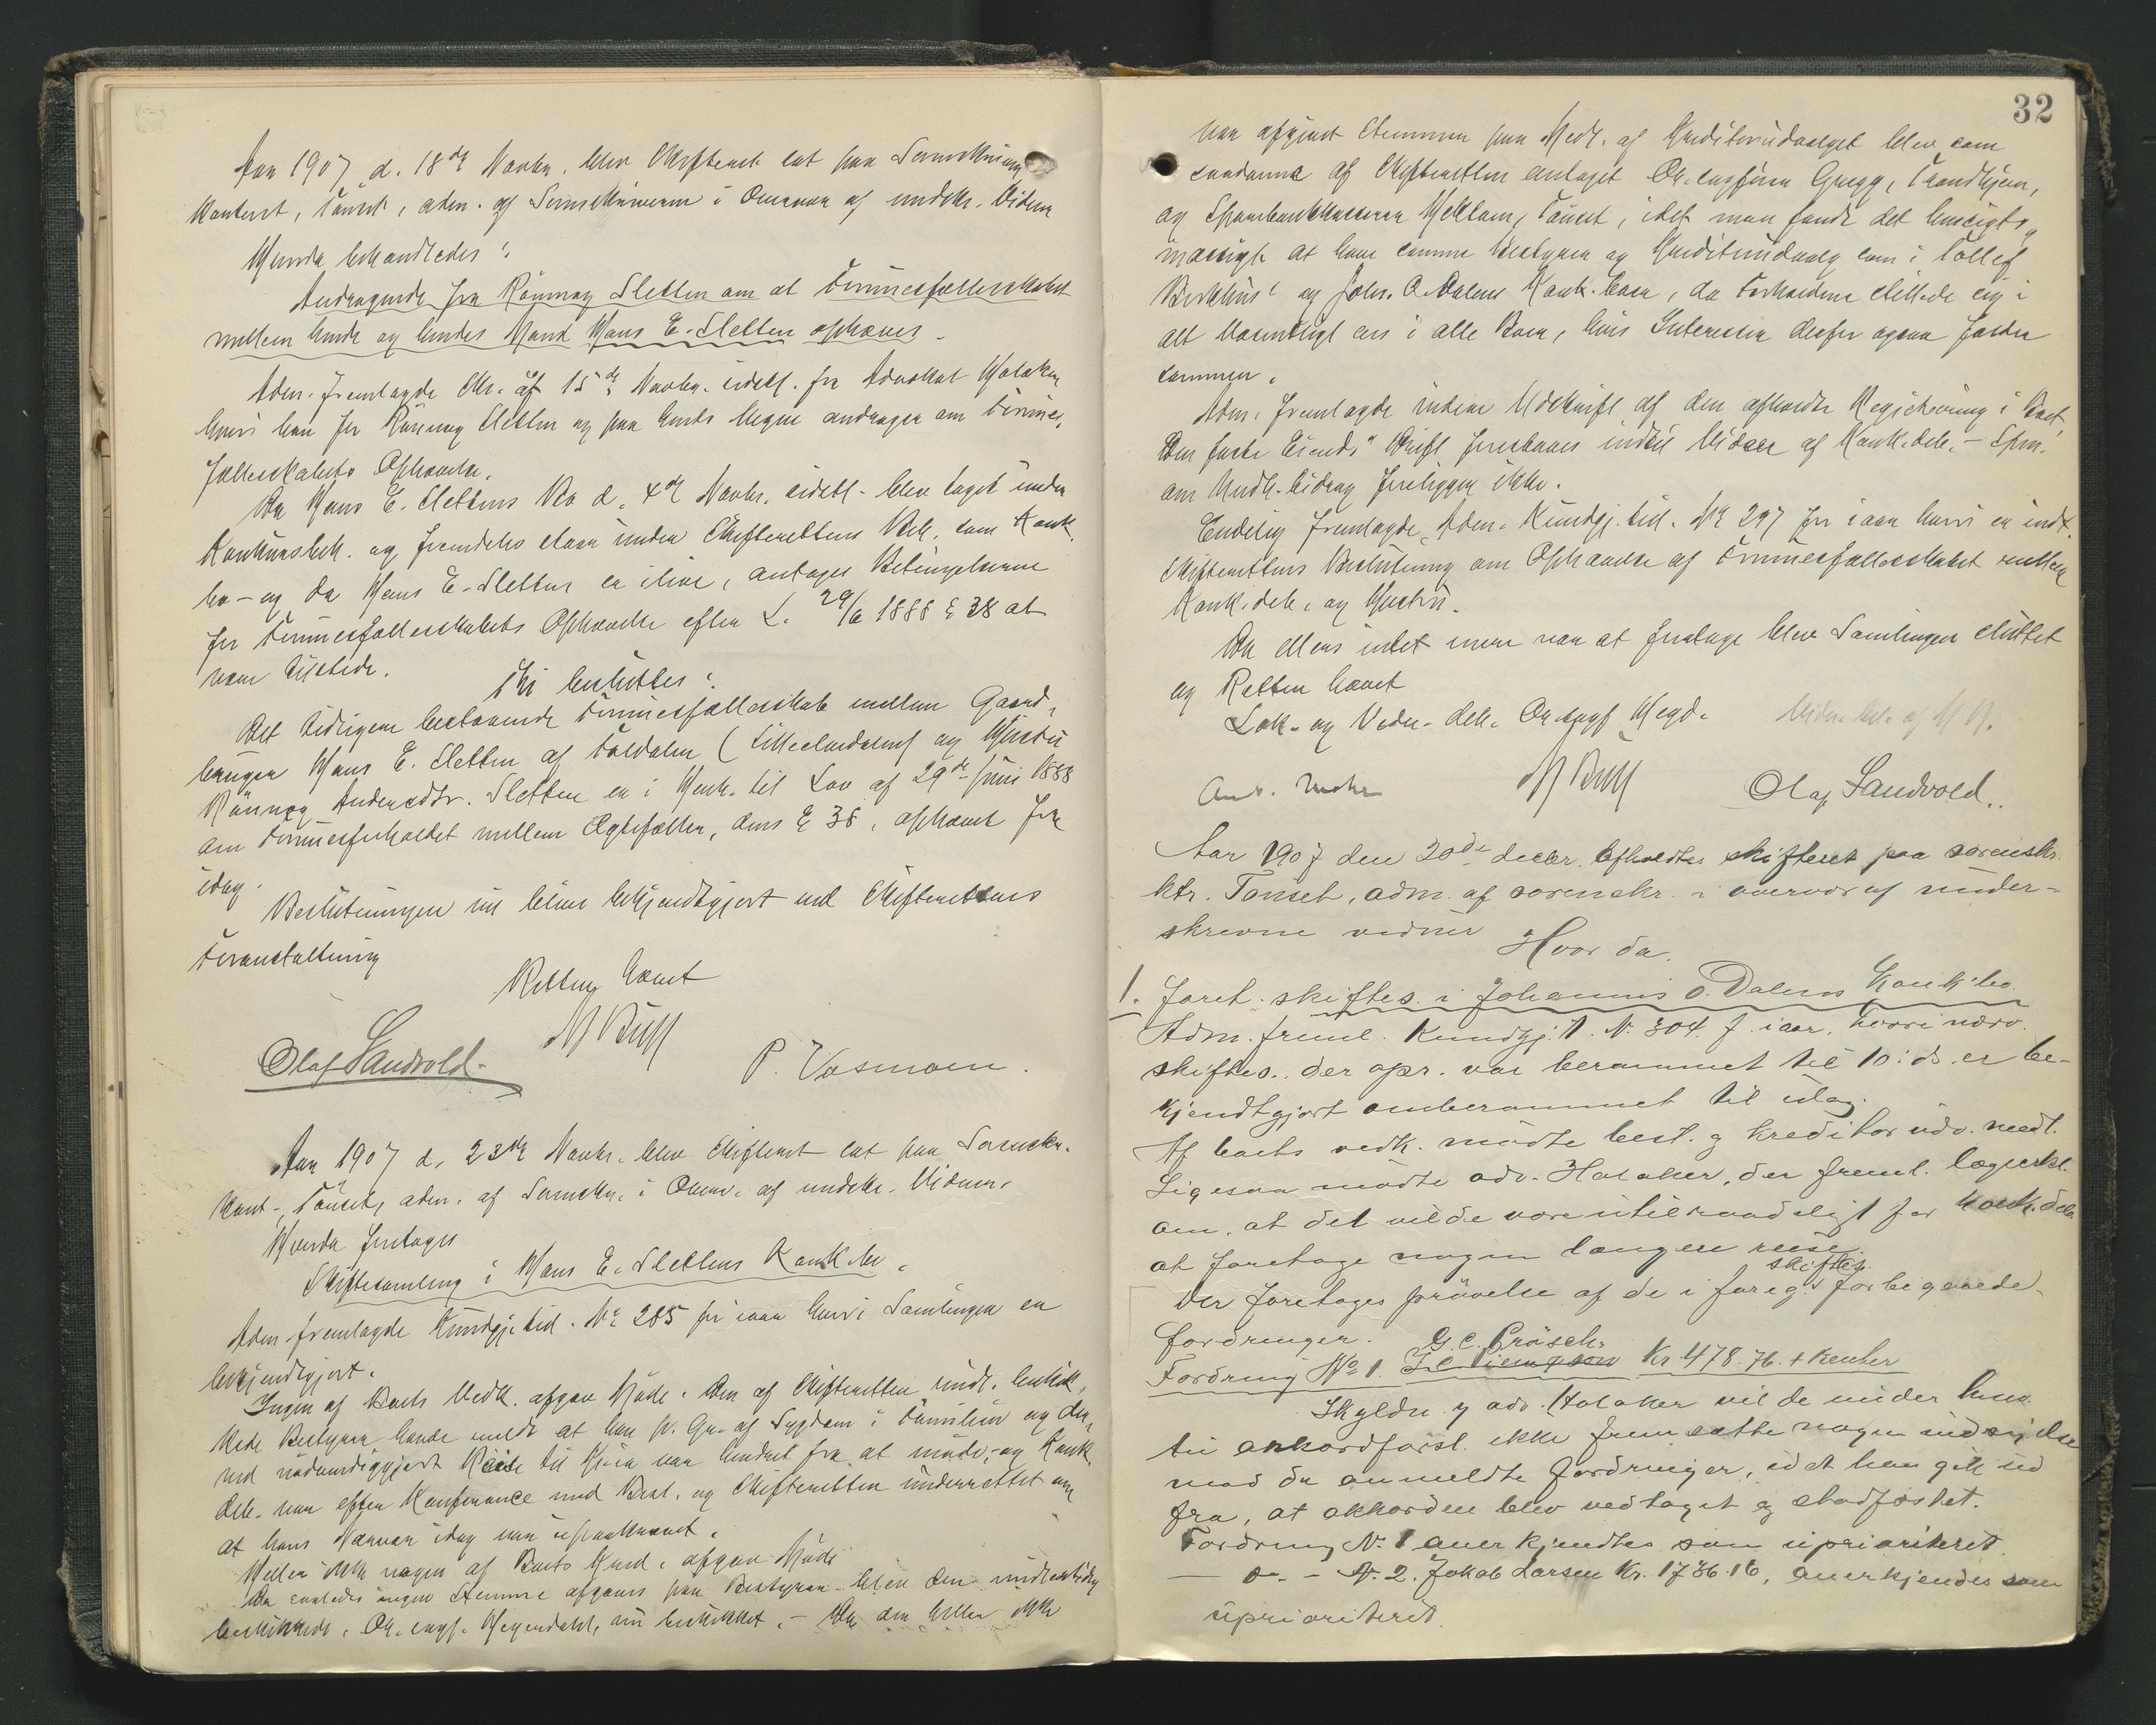 Aar 1907 d. 18de Novbr. blev Skifteret sat paa Sorenskriver
kontoret, Tönset, adm. af Sorenskriveren i Overvær af undskr. Vidner
Hvorda behandledes:
Andragende fra Rönnog Sletten om at Formuesfællesskabet
mellem hende og hendes Mand Hans E. Sletten ophæves.
Adm. fremlagde Skr. af 15de Novbr. sidstl. fra Advokat Holaker
hvori han for Rönnog Sletten og paa hends Vegne andrager om Formues
fællesskabets Ophævelse.
Da Hans E. Slettens Bo d. 4de Novbr. sidstl. blev taget under
Konkursbeh. og fremdeles staar under Skifterettens Beh. som Konk.
bo - og da Hans E. Sletten er ilive, antages Betingelserne
for Formuesfællesskabets Ophævelse efter L. 29/6 1888 § 38 at
være tilstede.
Thi besluttes:
Det tidligere bestaaende Formuesfællesskab mellem Gaard,
bruger Hans E. Sletten af Foldalen og Hustru
Rönnog Andersdtr. Sletten er i Henh. til Lov af 29de Juni 1888
om Formuesforholdet mellem Ægtefæller, dens § 38, ophævet fra
idag.
Beslutningen vil blive bekjendtgjort ved Skifterettens
Foranstaltning
Retten hævet
Olaf Sandvold.
M Bull
P. Vosmoen.
Aar 1907 d. 23de Novbr. blev Skifteret sat paa Sorenskr.
kont., Tönset, adm. af Sorenskr. i Overv. af undskr. Vidner.
Hvorda foretoges
Skiftesamling i Hans E. Slettens Konk.bo.
Adm. fremlagde Kundgj.tid. Nr 285 for iaar hvori Samlingen er
bekjendtgjort.
Ingen af Boets Vedk. afgav Möde. Den af Skifteretten midl. beskik,
kede Bestyrer havde meldt at han p. Gr. af Sygdom i Familien og der,
ved nödvendiggjort Reise til var hindret fra at möde, og Konk.
deb. var efter Konferance med Best. og Skifteretten underrettet om
at hans Nærvær idag var upaakrævet.
Heller ikke nogen af Boets Kred. afgav Möde
Da saaledes ingen Stemme afgaves paa Bestyrer blev den midlertidig
beskikkede, O.r.sagf. Hegendahl, nu beskikket. - Da der heller ikke
32
var afgivet Stemmer paa Medl. af Kreditorudvalget blev som
saadanne af Skifteretten antaget O.r.sagförer Gregg, Trondhjem,
og Sparebankkasserer Tönset, idet man fandt det hensigts,
mæssigt at have samme Bestyrer og Kreditorudvalg som i Tollef
og Johs. O. Dalens Konk.boer, da Forholdene stillede sig i
alt Væsentligt ens i alle Boer, hvis Interesser derfor ogsaa falder
sammen.
Adm. fremlagde videre Udskrift af den afholdte Registrering i Boet.
Den faste Eiends. Drift forestaaes indtil Videre af Konk.deb. - Spm.
om Underh.bidrag foreligger ikke.
Endelig fremlagde Adm. Kundgj.tid. Nr 297 for iaar hvori er indt.
Skifterettens Beslutning om Ophævelse af Formuesfællesskabet mellem
Konk.deb. og Hustru.
Da ellers intet mere var at foretage blev Samlingen sluttet
og Retten hævet
M Bull
Olaf Sandvold.
Aar 1907 den 20de decbr. afholdtes skifteret paa sorenskr.
ktr. Tönset, adm. af sorenskr. i overvær af under-
skrevne vidner
Hvor da.
1. Foret. skiftes. i Johannes O. Dalens Konk.bo.
Adm. freml. Kundgj.t. Nr. 304 f. iaar, hvori nærv.
skiftes. der opr. var berammet til 10: ds. er be-
kjendtgjort omberammet til idag.
Af boets vedk. mödte best. og kreditorudv. medl.
Ligesaa mödte adv. Holaker, der freml. lægeerkl.
om, at det vilde være utilraadeligt for Konk.deb.
at foretage nogen længere reise.
Der foretoges prövelse af de i foreg. skiftes. forbigaaede
fordringer.
Fordring No 1. G. C. Gräsch. Kr. 478.76 + Renter
Skyldn. og adv. Holaker vilde under hens.
til akkordforsl. ikke fremsætte nogen indsigelse
mod de anmeldte fordringer, idet han gik ud
fra, at akkorden blev vedtaget og stadfæstet.
Fordring Nr. 1 anerkjendtes som uprioriteret
— o — Nr. 2. Jakob Larsen Kr. 1736.16, anerkjendes som
uprioriteret.